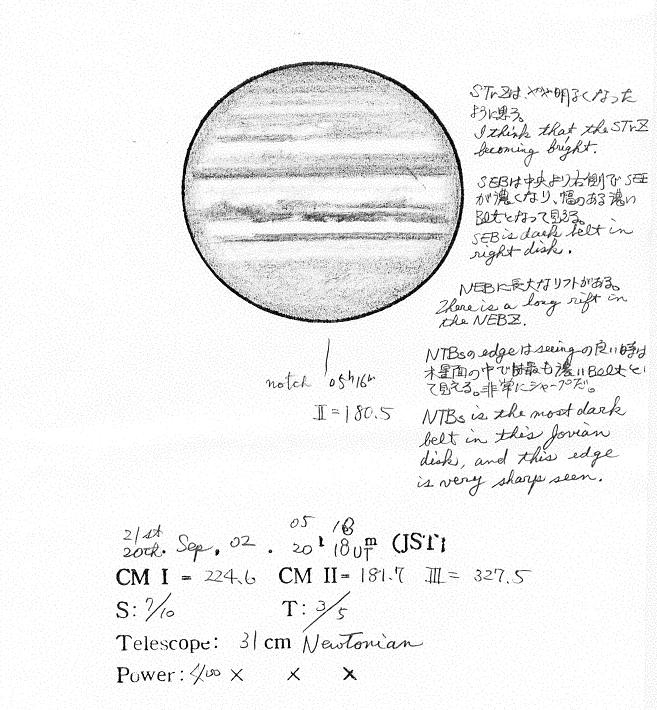 STrZは、やや明るくなった
ように思う。
I think that the STrZ
becoming bright.
SEBは中央より右側で SEB
が濃くなり、幅のある濃い
Beltとなって見える。
SEB is dark belt in
right disk.
NEBに長大なリフトがある。
There is a long rift in
the NEBZ.
NTBsのedgeはseeingの良い時は
木星面の中では最も濃いBeltと
て見える。非常にシャープだ。
NTBs is the most dark
belt in this Jovian
disk, and this edge
is very sharp seen.
notch 05h16m
II=180.5
21st 05 18
20th. Sep. 02 . 20h 18m UT (JST)
CM I = 224.6 CM II= 181.7 III= 327.5
S: 7/10 T: 3/5
Telescope: 31 cm Newtonian
Power: 400 × × ×